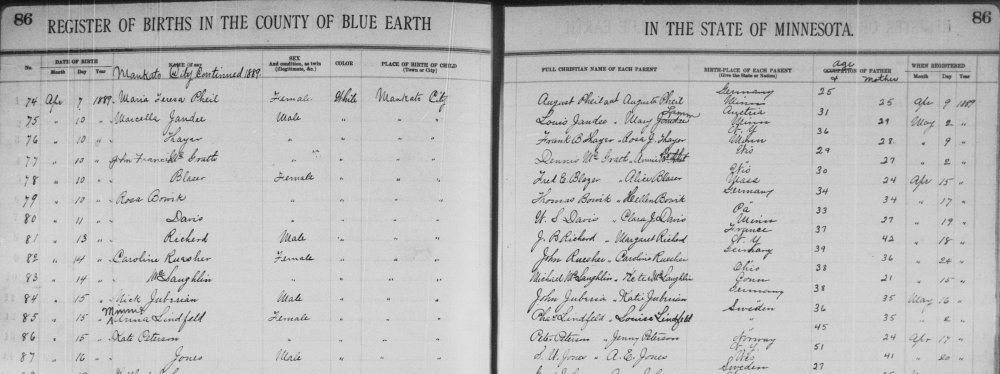 86 REGISTER OF BIRTHS IN THE COUNTY OF BLUE EARTH
IN THE STATE OF MINNESOTA. 86
No. DATE OF BIRTH NAME (if any) SEX COLOR PLACE OF BIRTH OF CHILD
Month Day Year And condition, as twin (Illegitimate, &c.) (Town or City)
Mankato City Continued 1889
FULL CHRISTIAN NAME OF EACH PARENT BIRTH-PLACE OF EACH PARENT age OF FATHER & mother WHEN REGISTERED
(Give the State or Nation) Month Day Year
74 Apr 7 1889 Maria Teresa Pheil Female White Mankato City August Pheil and Augusta Pheil Germany Minn 25 25 Apr 9 1889
75 " 10 " Marcella Jandee Male " " " Louis Jandee " Mary Jandee Austria Minn 31 29 May 2 "
76 " 10 " Thayer " " " " Frank B Thayer " Rosa J. Thayer N. Y Minn 36 28 " 9 "
77 " 10 " John Francis " " " " Dennis " Wis 29 27 " 2 "
78 " 10 " Blazer Female " " " Fred E. Blazer " Alice Blazer Wis Mass 30 24 Apr 15 "
79 " 10 " Rosa Bowik " " " " Thomas Bowik " Hellen Bowik Germany 34 34 " 17 "
80 " 11 " Davis " " " " W. S Davis " Clara J. Davis Pa Minn 33 27 " 19 "
81 " 13 " Richerd Male " " " J. B Richerd " Margaret Richerd France N. Y 37 42 " 18 "
82 " 14 " Caroline Ruesher Female " " " John Ruesher " Caroline Ruesher Germany 39 36 " 24 "
83 " 14 " McLaughlin " " " Michael McLaughlin " McLaughlin Ohio Conn 38 21 " 15 "
84 " 15 " Nick Jubrian Male " " " John " Katie Jubrian Germany 38 35 May 16 "
85 " 15 " Minnie Lindfeld Female " " " Lindfeld " Louisa Lindfeld Sweden " 36 35 " 2 "
86 " 15 " Kate Peterson " " " Peter Peterson " Jenny Peterson " Norway 45 24 Apr 17 "
87 " 16 " Jones Male " " " S. U. Jones " A. E. Jones Wis 51 41 " 20 "
Sweden 27